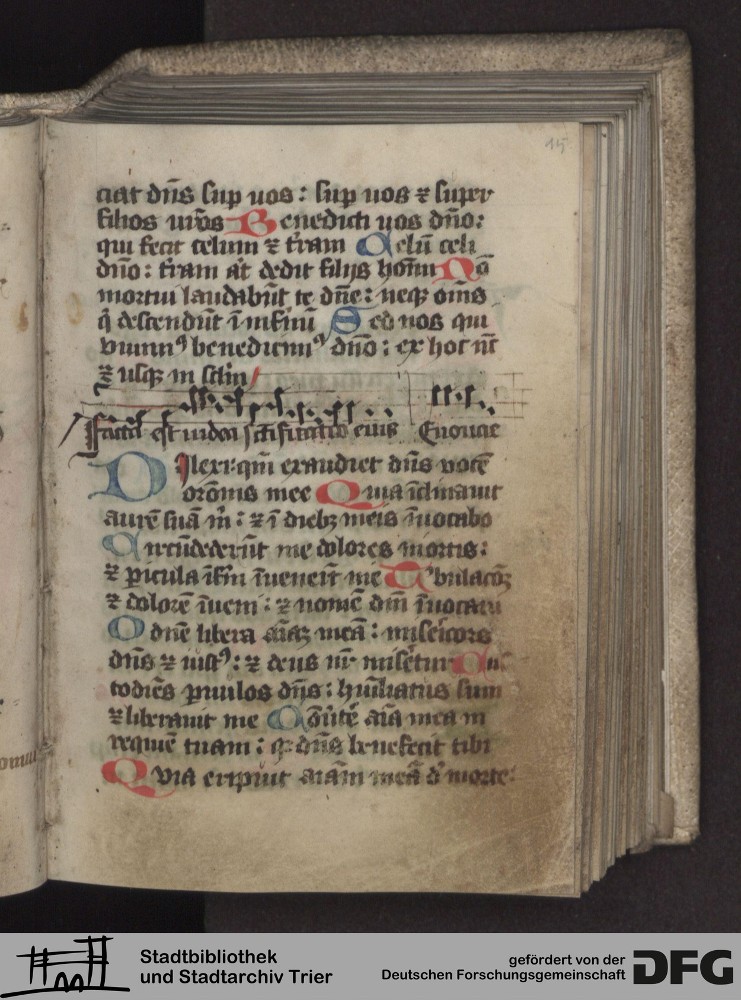 15
ciat dn̄s sup uos : sup uos ⁊ super
filios ur̄os Benedicti uos dn̄o :
qui fecit celum ⁊ tr̄am Celū celi
dn̄o : tr̄am at̄ dedit filijs hoīm Nō
mortui laudabūt te dn̄e : neqꝫ om̄s
q̇ descendūt ī infnū Sed nos qui
viuimꝰ benedicimꝰ dn̄o : ex hoc nc̄
⁊ usqꝫ in sclm̄
Facta est iudea sc̄ificatio eius Euouae
Dilexi : qm̄ exaudiet dn̄s uocē
or̄onis mee Quia īclinauit
aurē suā m̄ : ⁊ ī diebꝫ meis īuocabo
Circūdederūt me dolores mortis :
⁊ ꝑicula īfn̄i īuenerūt me Tribulacōꝫ
⁊ dolorē īueni : ⁊ nomē dn̄i īuocaui
O dn̄e libera aīaꝫ meā : miseicors
dn̄s ⁊ iustꝰ : ⁊ deus nr̄ miset̄ur Cu
todiēs ꝑuulos dn̄s : humiliatus sum
⁊ liberauit me Cōūtē aīa mea in
requiē tuam : q̄ dn̄s benefecit tibi
Quia eripuit aīam meā d̄ morte :
Stadtbibliothek
und Stadtarchiv Trier
gefördert von der
Deutschen Forschungsgemeinschaft
DFG